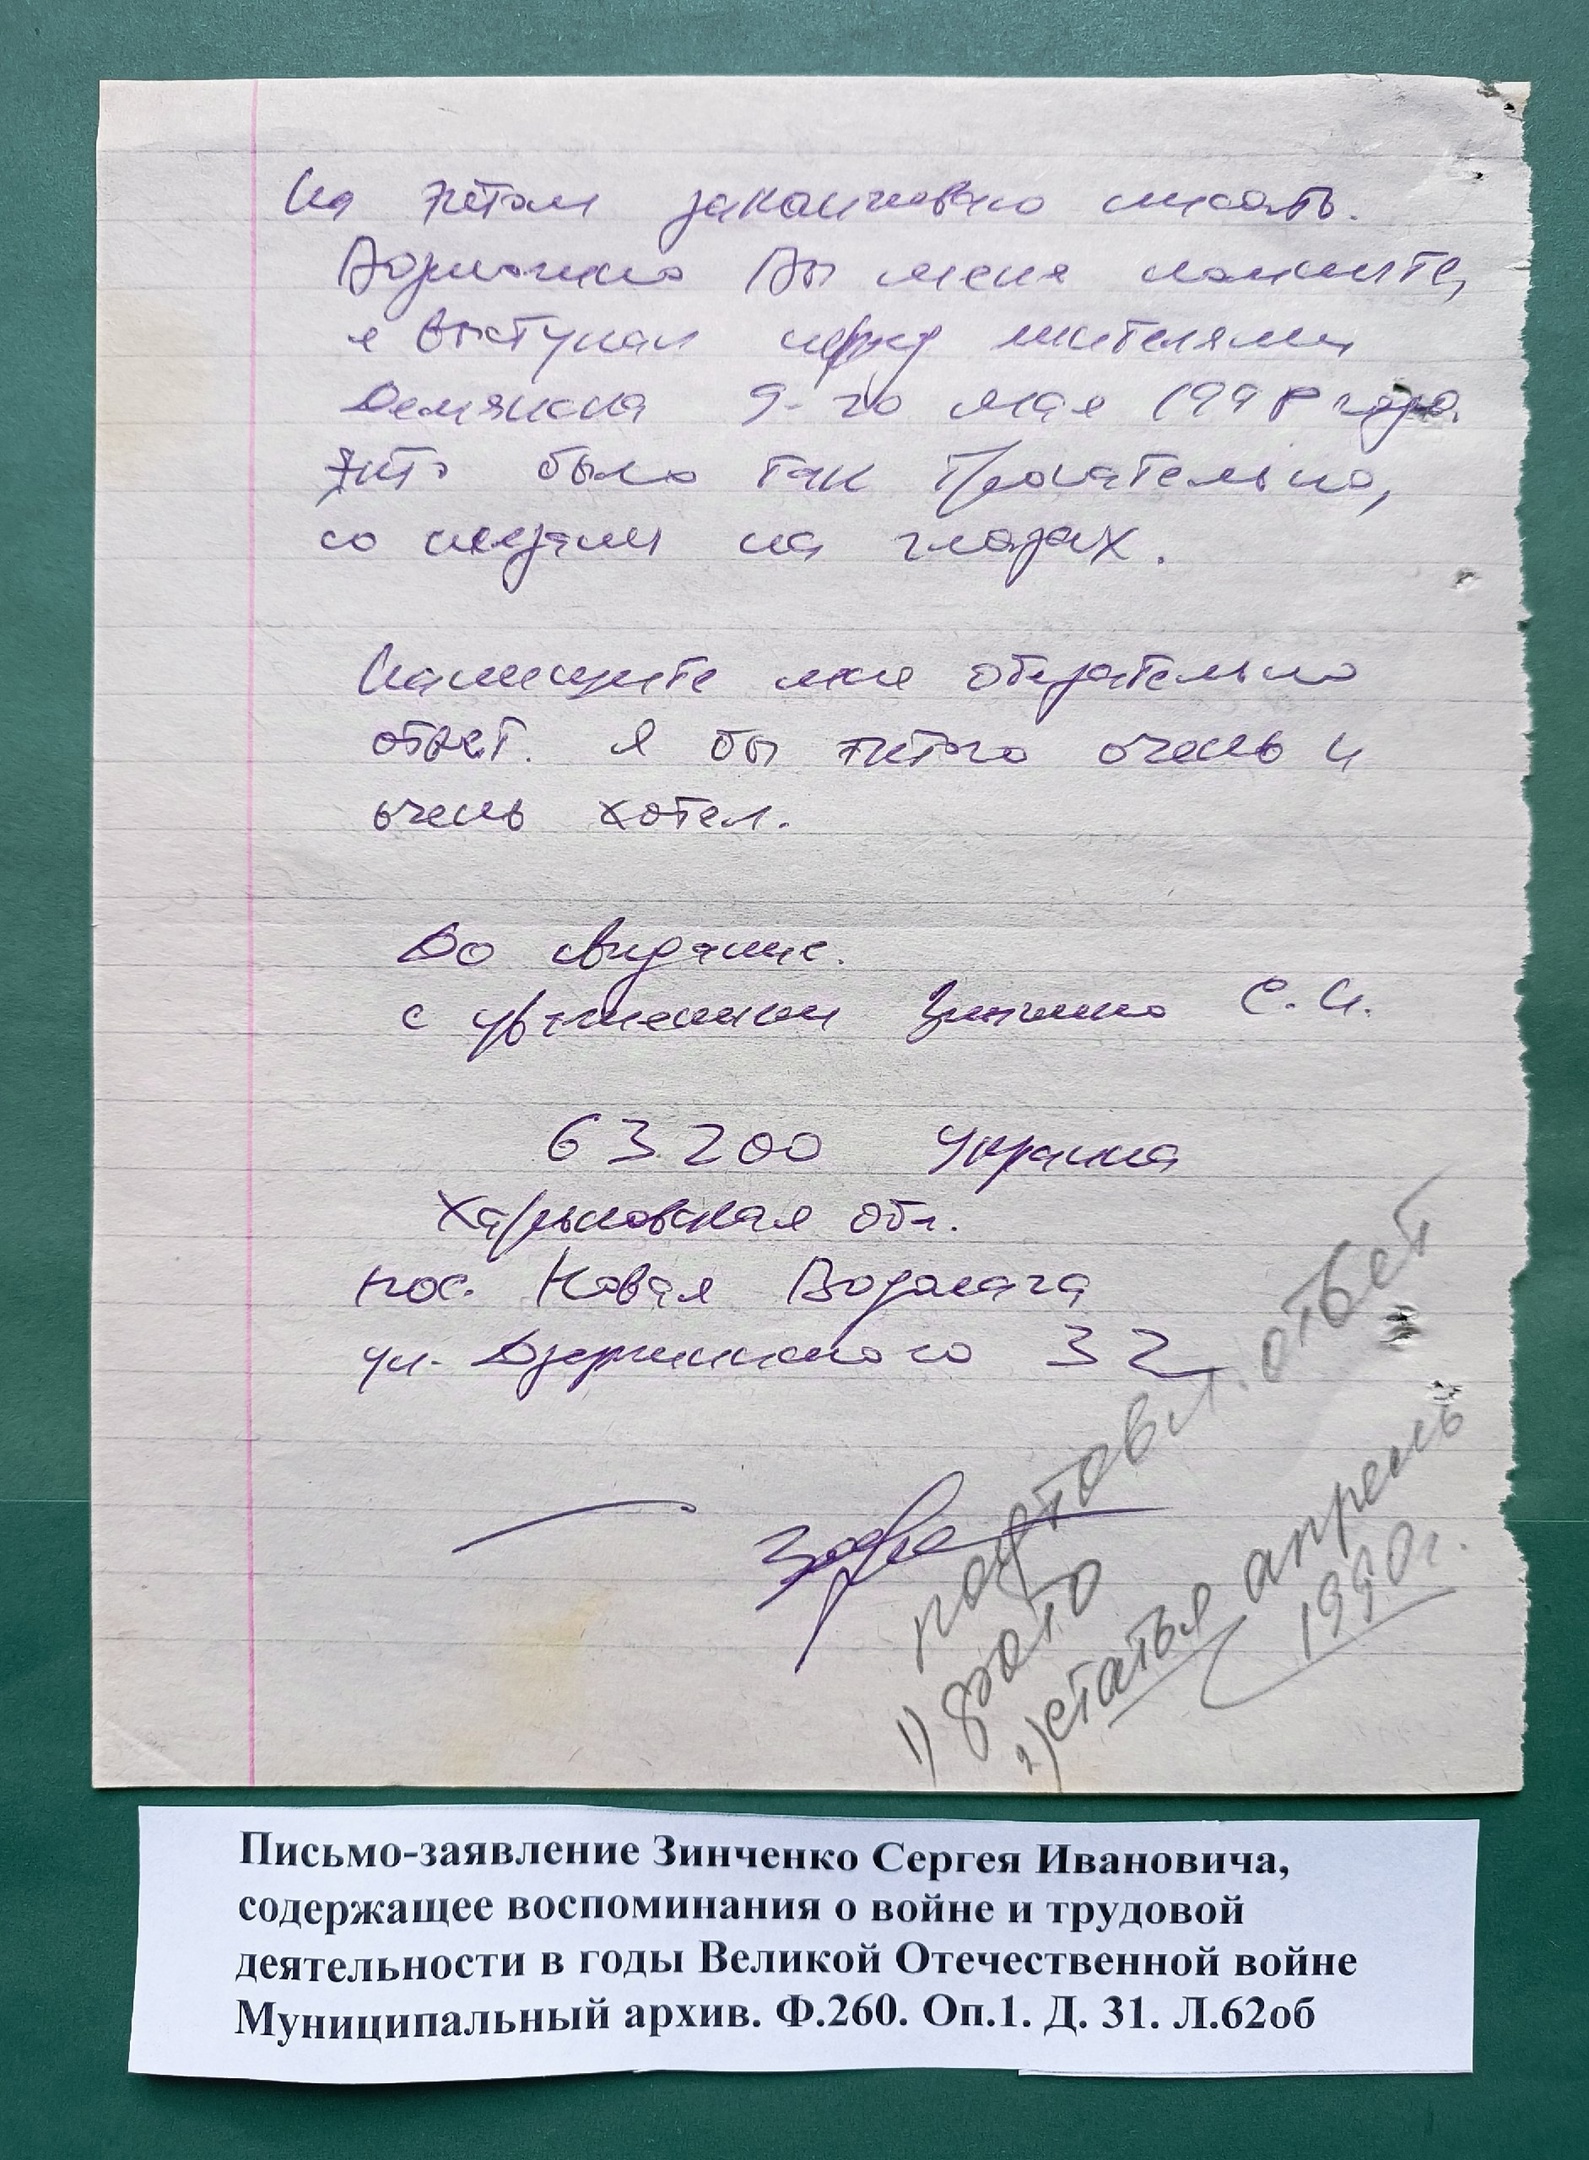 На этом заканчиваю писать.
Возможно Вы меня помните,
я выступал перед жителями
Демянска 9-го мая года.
это было так трогательно,
со слезами на глазах.
Напишите мне обязательно
ответ. Я бы этого очень и
очень хотел.
До свидание.
с уважением Зинченко С.И.
63200 Украина
Харьковская обл.
пос. Новая Водолага
ул. Дзержинского 32
подготовл. ответ
1) фото
2) статья апрель
1990г.
Письмо-заявление Зинченко Сергея Ивановича,
содержащее воспоминания о войне и трудовой
деятельности в годы Великой Отечественной войне
Муниципальный архив. Ф.260. Оп.1. Д. 31. Л.62об